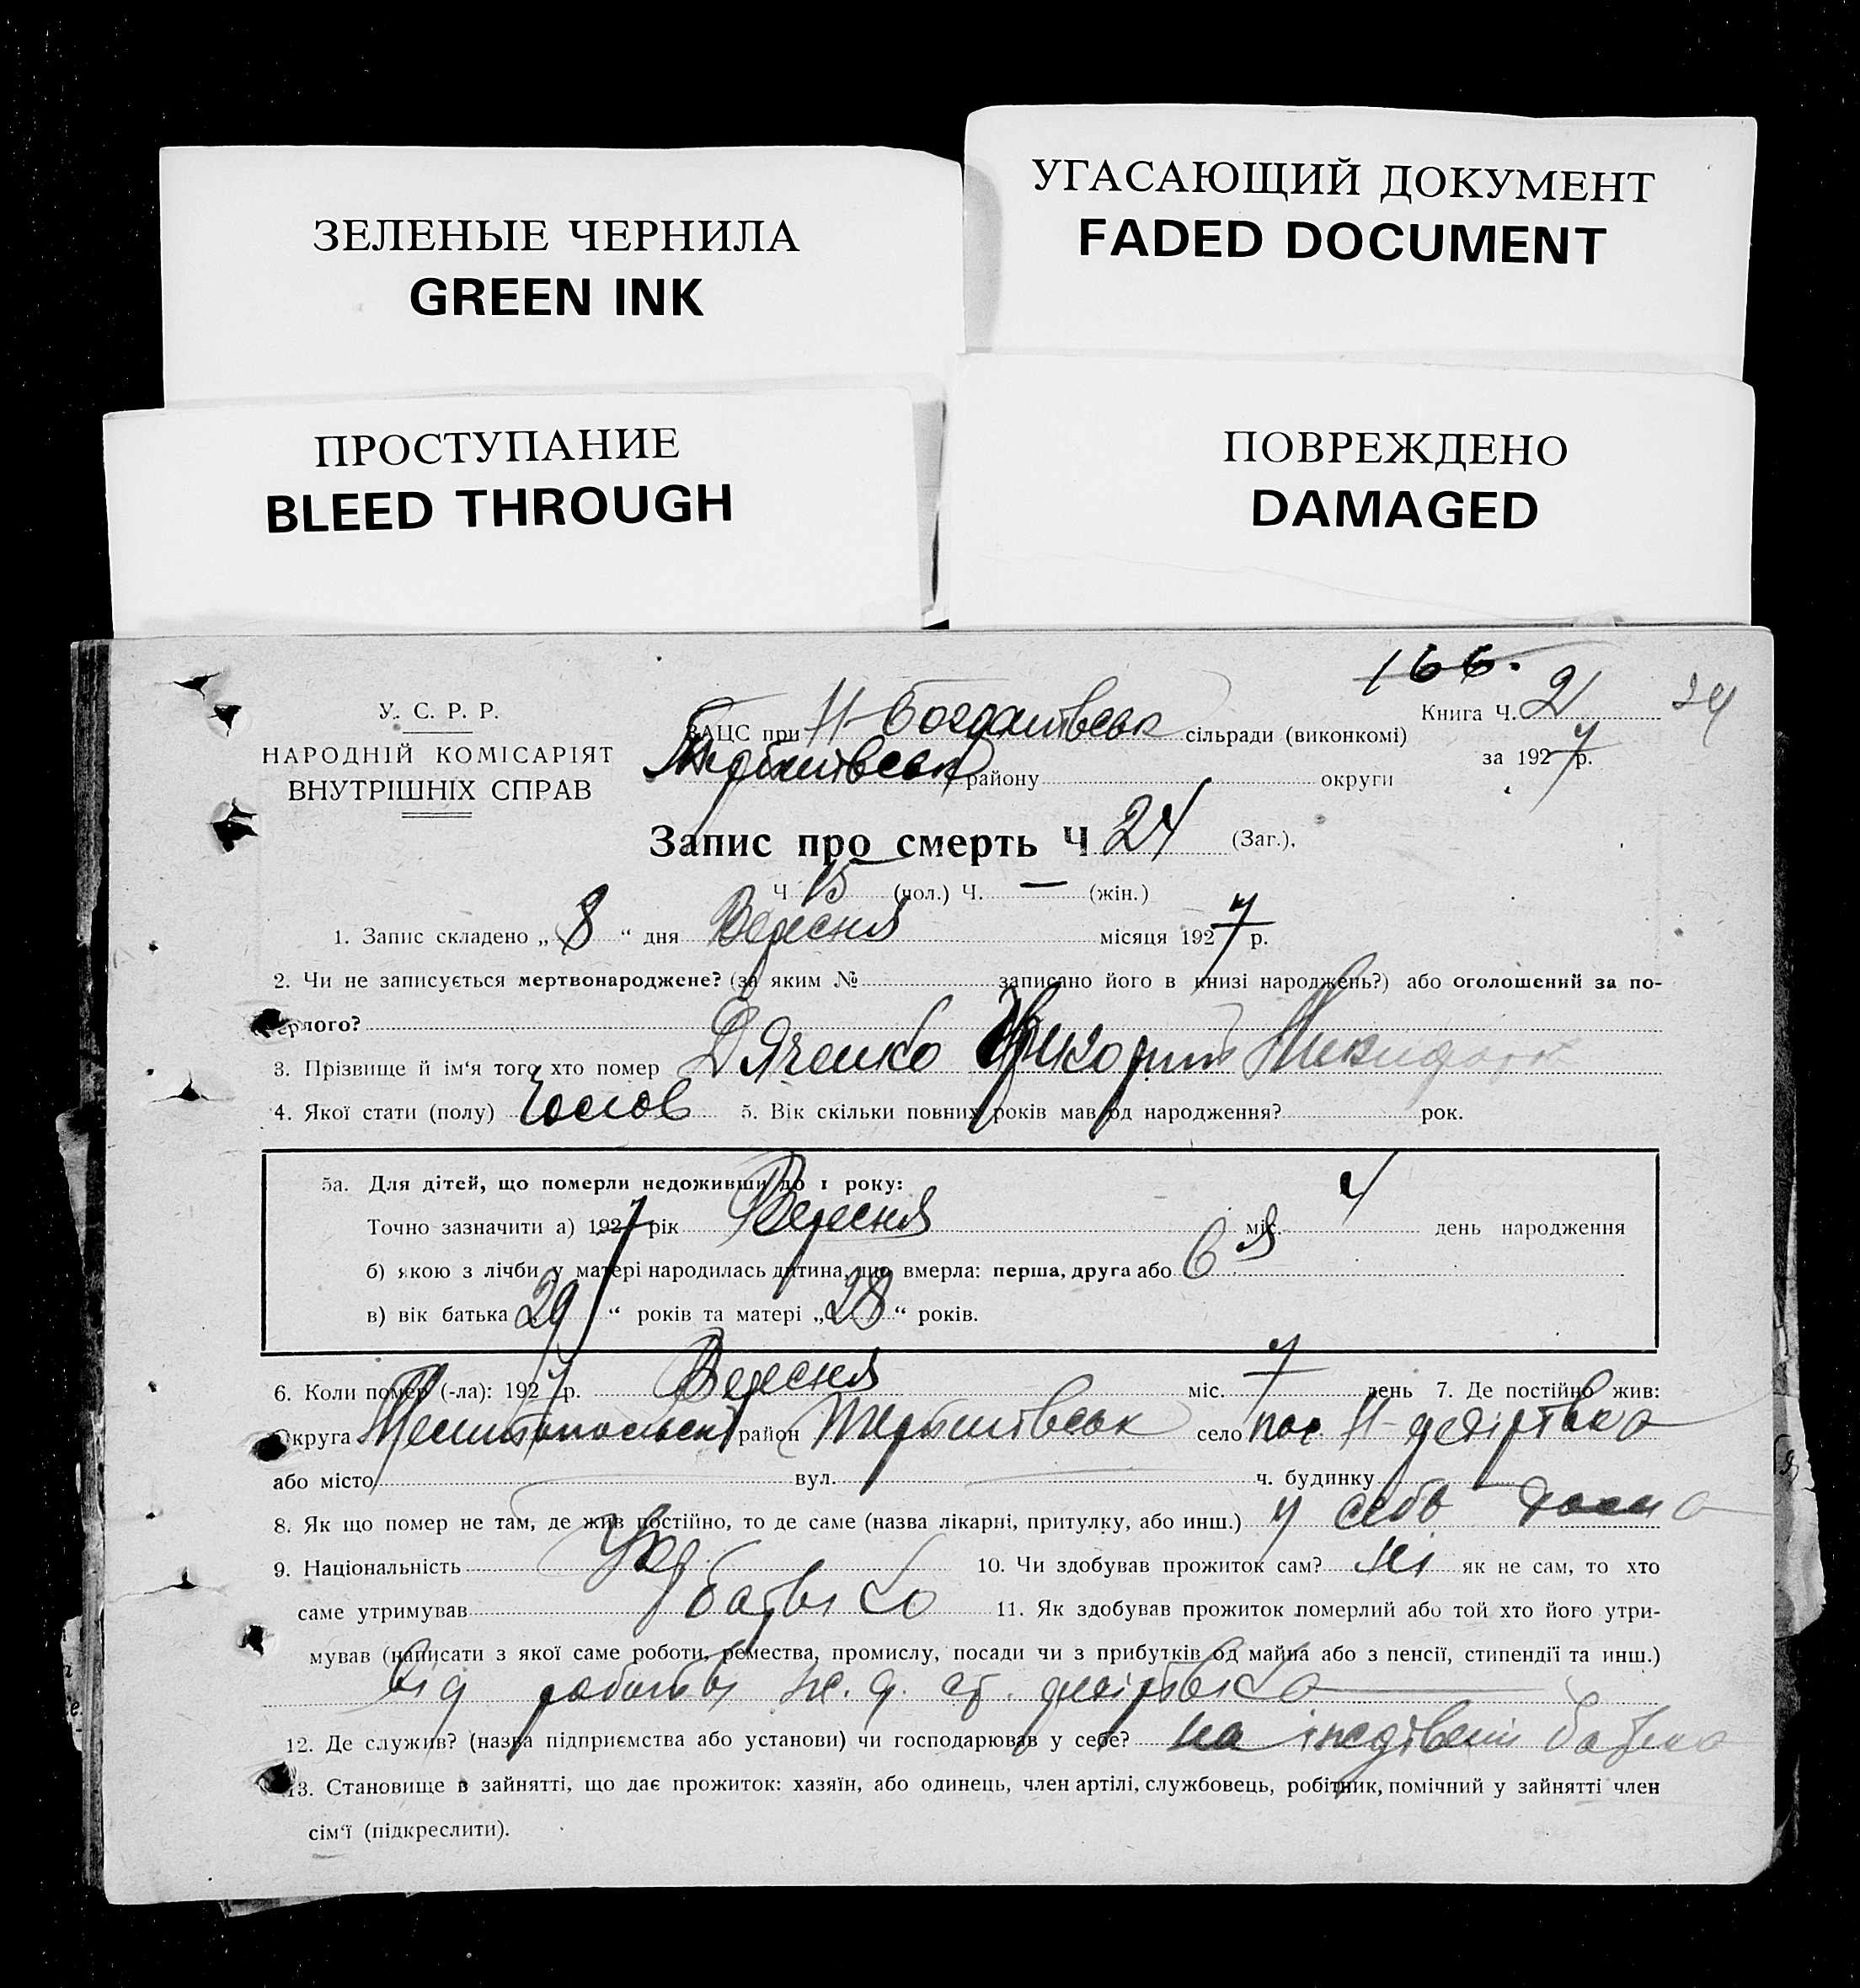 ЗЕЛЕНЫЕ ЧЕРНИЛА
GREEN INK
УГАСАЮЩИЙ ДОКУМЕНТ
FADED DOCUMENT
ПРОСТУПАНИЕ
BLEED THROUGH
ПОВРЕЖДЕНО
DAMAGED
166.
24
У. С. Р. Р.
НАРОДНІЙ КОМІСАРІЯТ
ВНУТРІШНІХ СПРАВ
ЗАЦС при Н-Богданівськ сільради (виконкомі)
району округи
Книга Ч. 2
за 1927 р.
Запис про смерть Ч 24 (Заг.).
Ч 15 (чол.) Ч. — (жін.)
1. Запис складено „ 8 “ дня Вересня місяця 1927 р.
2. Чи не записується мертвонароджене? (за яким № записано його в книзі народжень?) або оголошений за по-
ерлого?
3. Прізвище й ім‘я того хто помер Дяченко Григорий
4. Якої стати (полу) Чолов 5. Вік скільки повних років мав од народження? рок.
5а. Для дітей, що померли недоживши до 1 року:
Точно зазначити а) 1927 рік Вересня міс. 4 день народження
б) якою з лічби у матері народилась дитина, що вмерла: перша, друга або 6 я
в) вік батька 29 “ років та матері „ 28 “ років.
6. Коли помер (-ла): 1927 р. Вересня міс. 7 день 7. Де постійно жив:
Округа район село пос
або місто вул. ч. будинку
8. Як що помер не там, де жив постійно, то де саме (назва лікарні, притулку, або инш.) у себе дома
9. Національність Укр 10. Чи здобував прожиток сам? ні як не сам, то хто
саме утримував батько 11. Як здобував прожиток померлий або той хто його утри-
мував (написати з якої саме роботи, ремества, промислу, посади чи з прибутків од майна або з пенсії, стипендії та инш.)
від роботи
12. Де служив? (назва підприємства або установи) чи господарював у себе? на батька
13. Становище в зайнятті, що дає прожиток: хазяїн, або одинець, член артілі, службовець, робітник, помічний у зайнятті член
сім‘ї (підкреслити).